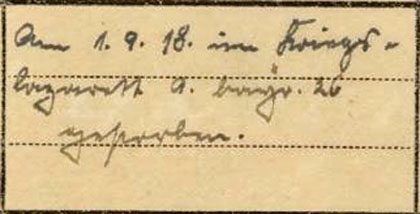 Am 1.9.18. im Kriegs-
lazarett A. bayr. 26
gestorben.